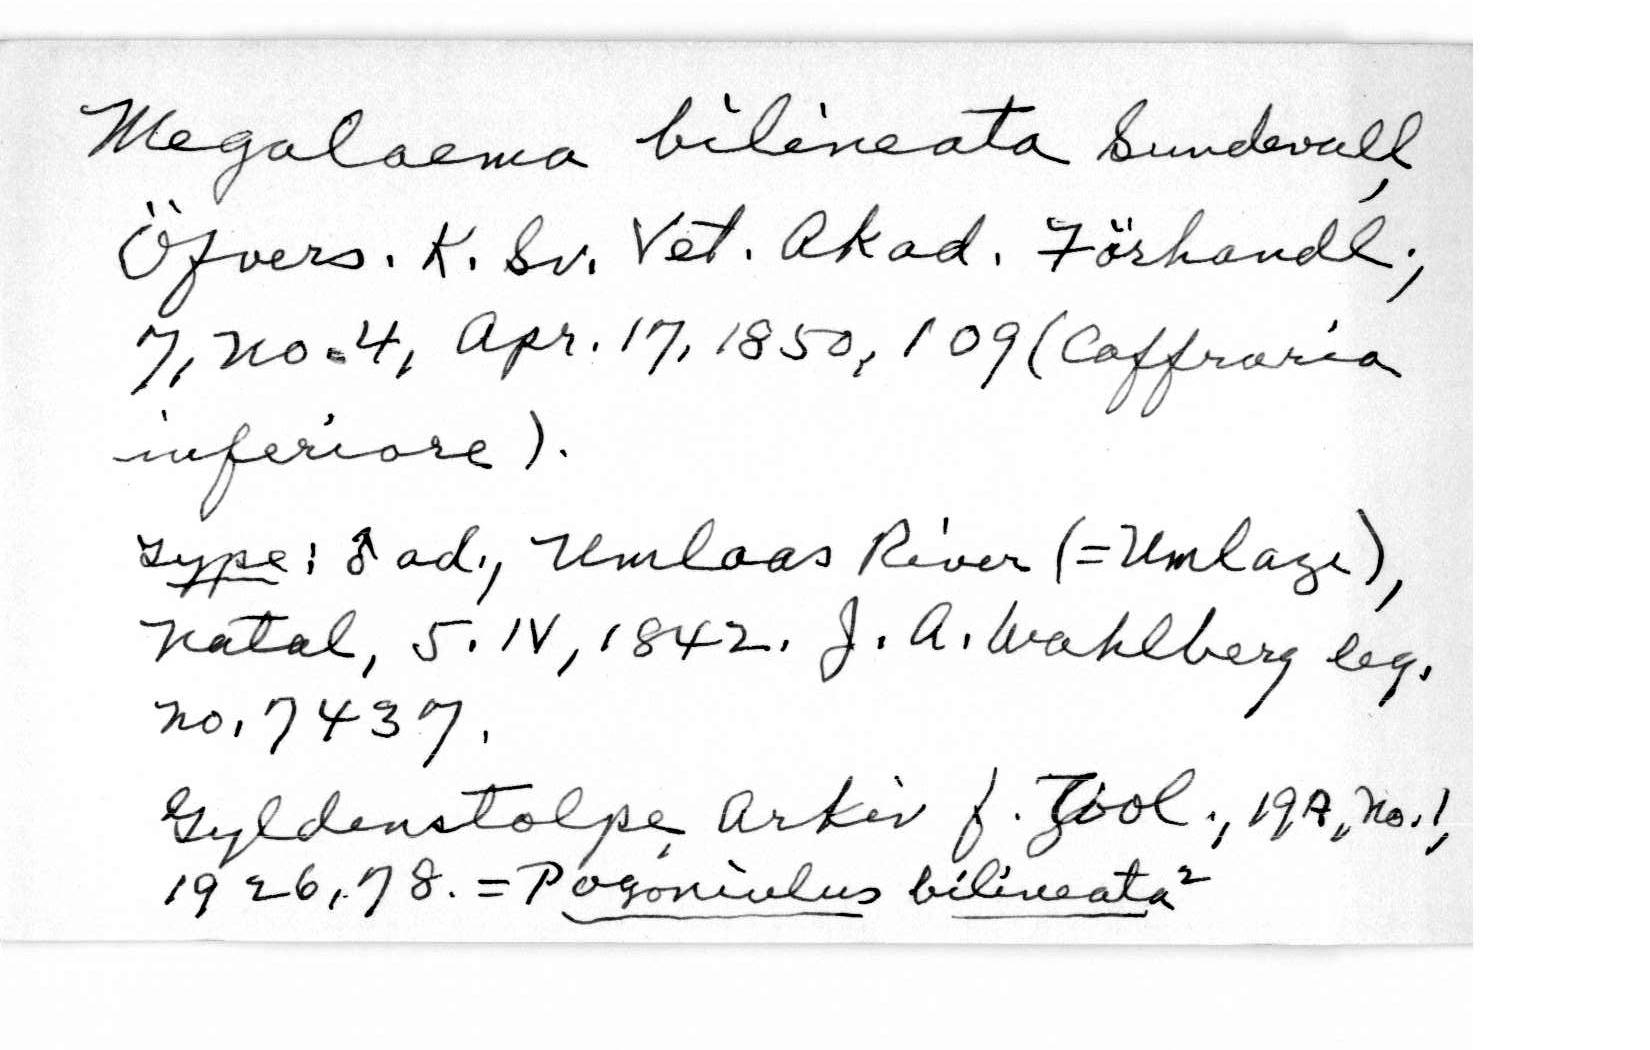 Megalaema bilineata Sundevall,
Öfvers. K. Sv. Vet. Akad. Förhandl.,
7, no. 4, Apr. 17, 1850, 109 (Caffraria
inferiore).
Type: ♂ ad., Umlaas River (= Umlazi),
Natal, 5. IV, 1842. J. A. Wahlberg leg.
no. 7437.
Gyldenstolpe, Arkiv f. Zool., 19A, no. 1,
1926, 78. = Pogoniulus bilineata²